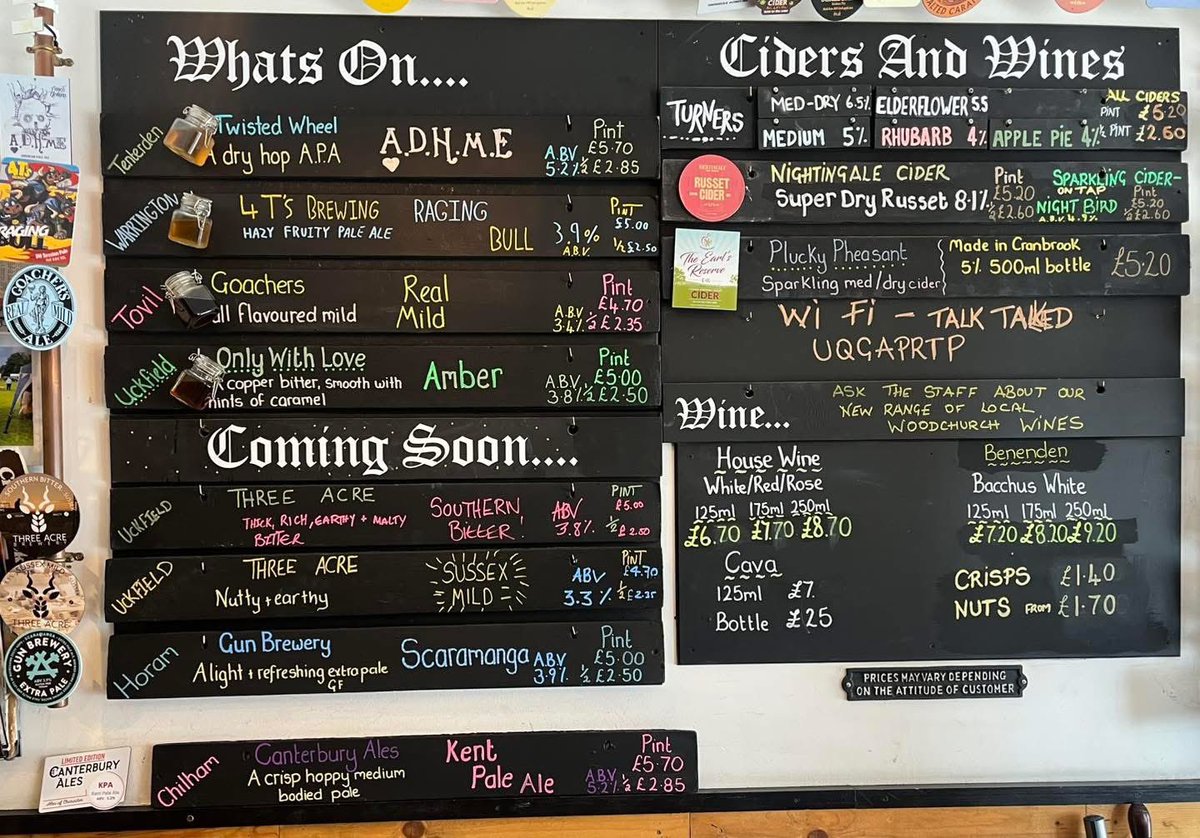 Whats On....
Tenterden
Twisted Wheel
dry hop A.P.A
A.D.H.M.E
A.B.V
5.2%
Pint
£5.70
½ £2.85
WARRINGTON
4 T's BREWING
HAZY FRUITY PALE ALE
RAGING
BULL
3.9%
A.B.V.
PINT
£5.00
½ £2.50
Tovil
Goachers
ull flavoured mild
Real
Mild
A.B.V
3.4%
Pint
£4.70
½ £2.35
Uckfield
Only With Love
copper bitter, smooth with
hints of caramel
Amber
A.B.V
3.8%
Pint
£5.00
½ £2.50
Coming Soon....
UCKFIELD
THREE ACRE
THICK, RICH, EARTHY + MALTY
BITTER
SOUTHERN
BITTER!
ABV
3.8%
PINT
£5.00
½ £2.50
UCKFIELD
THREE ACRE
Nutty + earthy
SUSSEX
MILD
ABV
3.3%
PINT
£4.70
½ £2.35
Horam
Gun Brewery
A light + refreshing extra pale
GF
Scaramanga
A.B.V
3.9%
Pint
£5.00
½ £2.50
Chilham
Canterbury Ales
A crisp hoppy medium
bodied pale
Kent
Pale Ale
A.B.V
5.2%
Pint
£5.70
½ £2.85
Ciders And Wines
TURNERS
MED-DRY 6.5%
MEDIUM 5%
ELDERFLOWER 5.5
RHUBARB 4%
APPLE PIE 4%
ALL CIDERS
PINT £5.20
½ PINT £2.60
RUSSET
CIDER
NIGHTINGALE CIDER
Super Dry Russet 8.1%
Pint
£5.20
½ £2.60
SPARKLING CIDER-
ON TAP
NIGHT BIRD
A.B.V 4.9%
Pint
£5.20
½ £2.60
The Earl's
Reserve
CIDER
Plucky Pheasant
Sparkling med/dry cider
Made in Cranbrook
5% 500ml bottle
£5.20
WiFi - TALK TALKED
UQGAPRTP
Wine...
ASK THE STAFF ABOUT OUR
NEW RANGE OF LOCAL
WOODCHURCH WINES
House Wine
White/Red/Rose
125ml 175ml 250ml
£6.70 £7.70 £8.70
Cava
125ml £7.
Bottle £25
Benenden
Bacchus White
125ml 175ml 250ml
£7.20 £8.20 £9.20
CRISPS £1.40
NUTS FROM £1.70
PRICES MAY VARY DEPENDING
ON THE ATTITUDE OF CUSTOMER
A.D.H.M.E
RAGING
GOACHER'S
REAL MILD
ALE
SOUTHERN BITTER
THREE ACRE
BREWERY
SUSSEX MILD
THREE ACRE
GUN BREWERY
EXTRA PALE
LIMITED EDITION
CANTERBURY
ALES
KPA